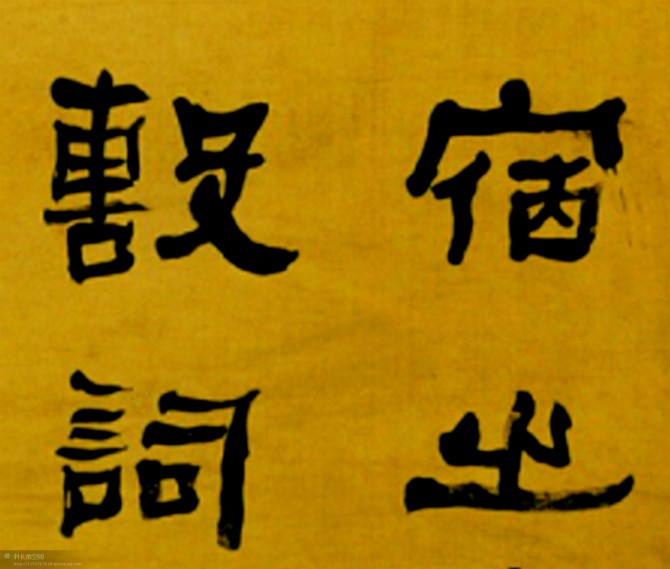 宿之
毄詞